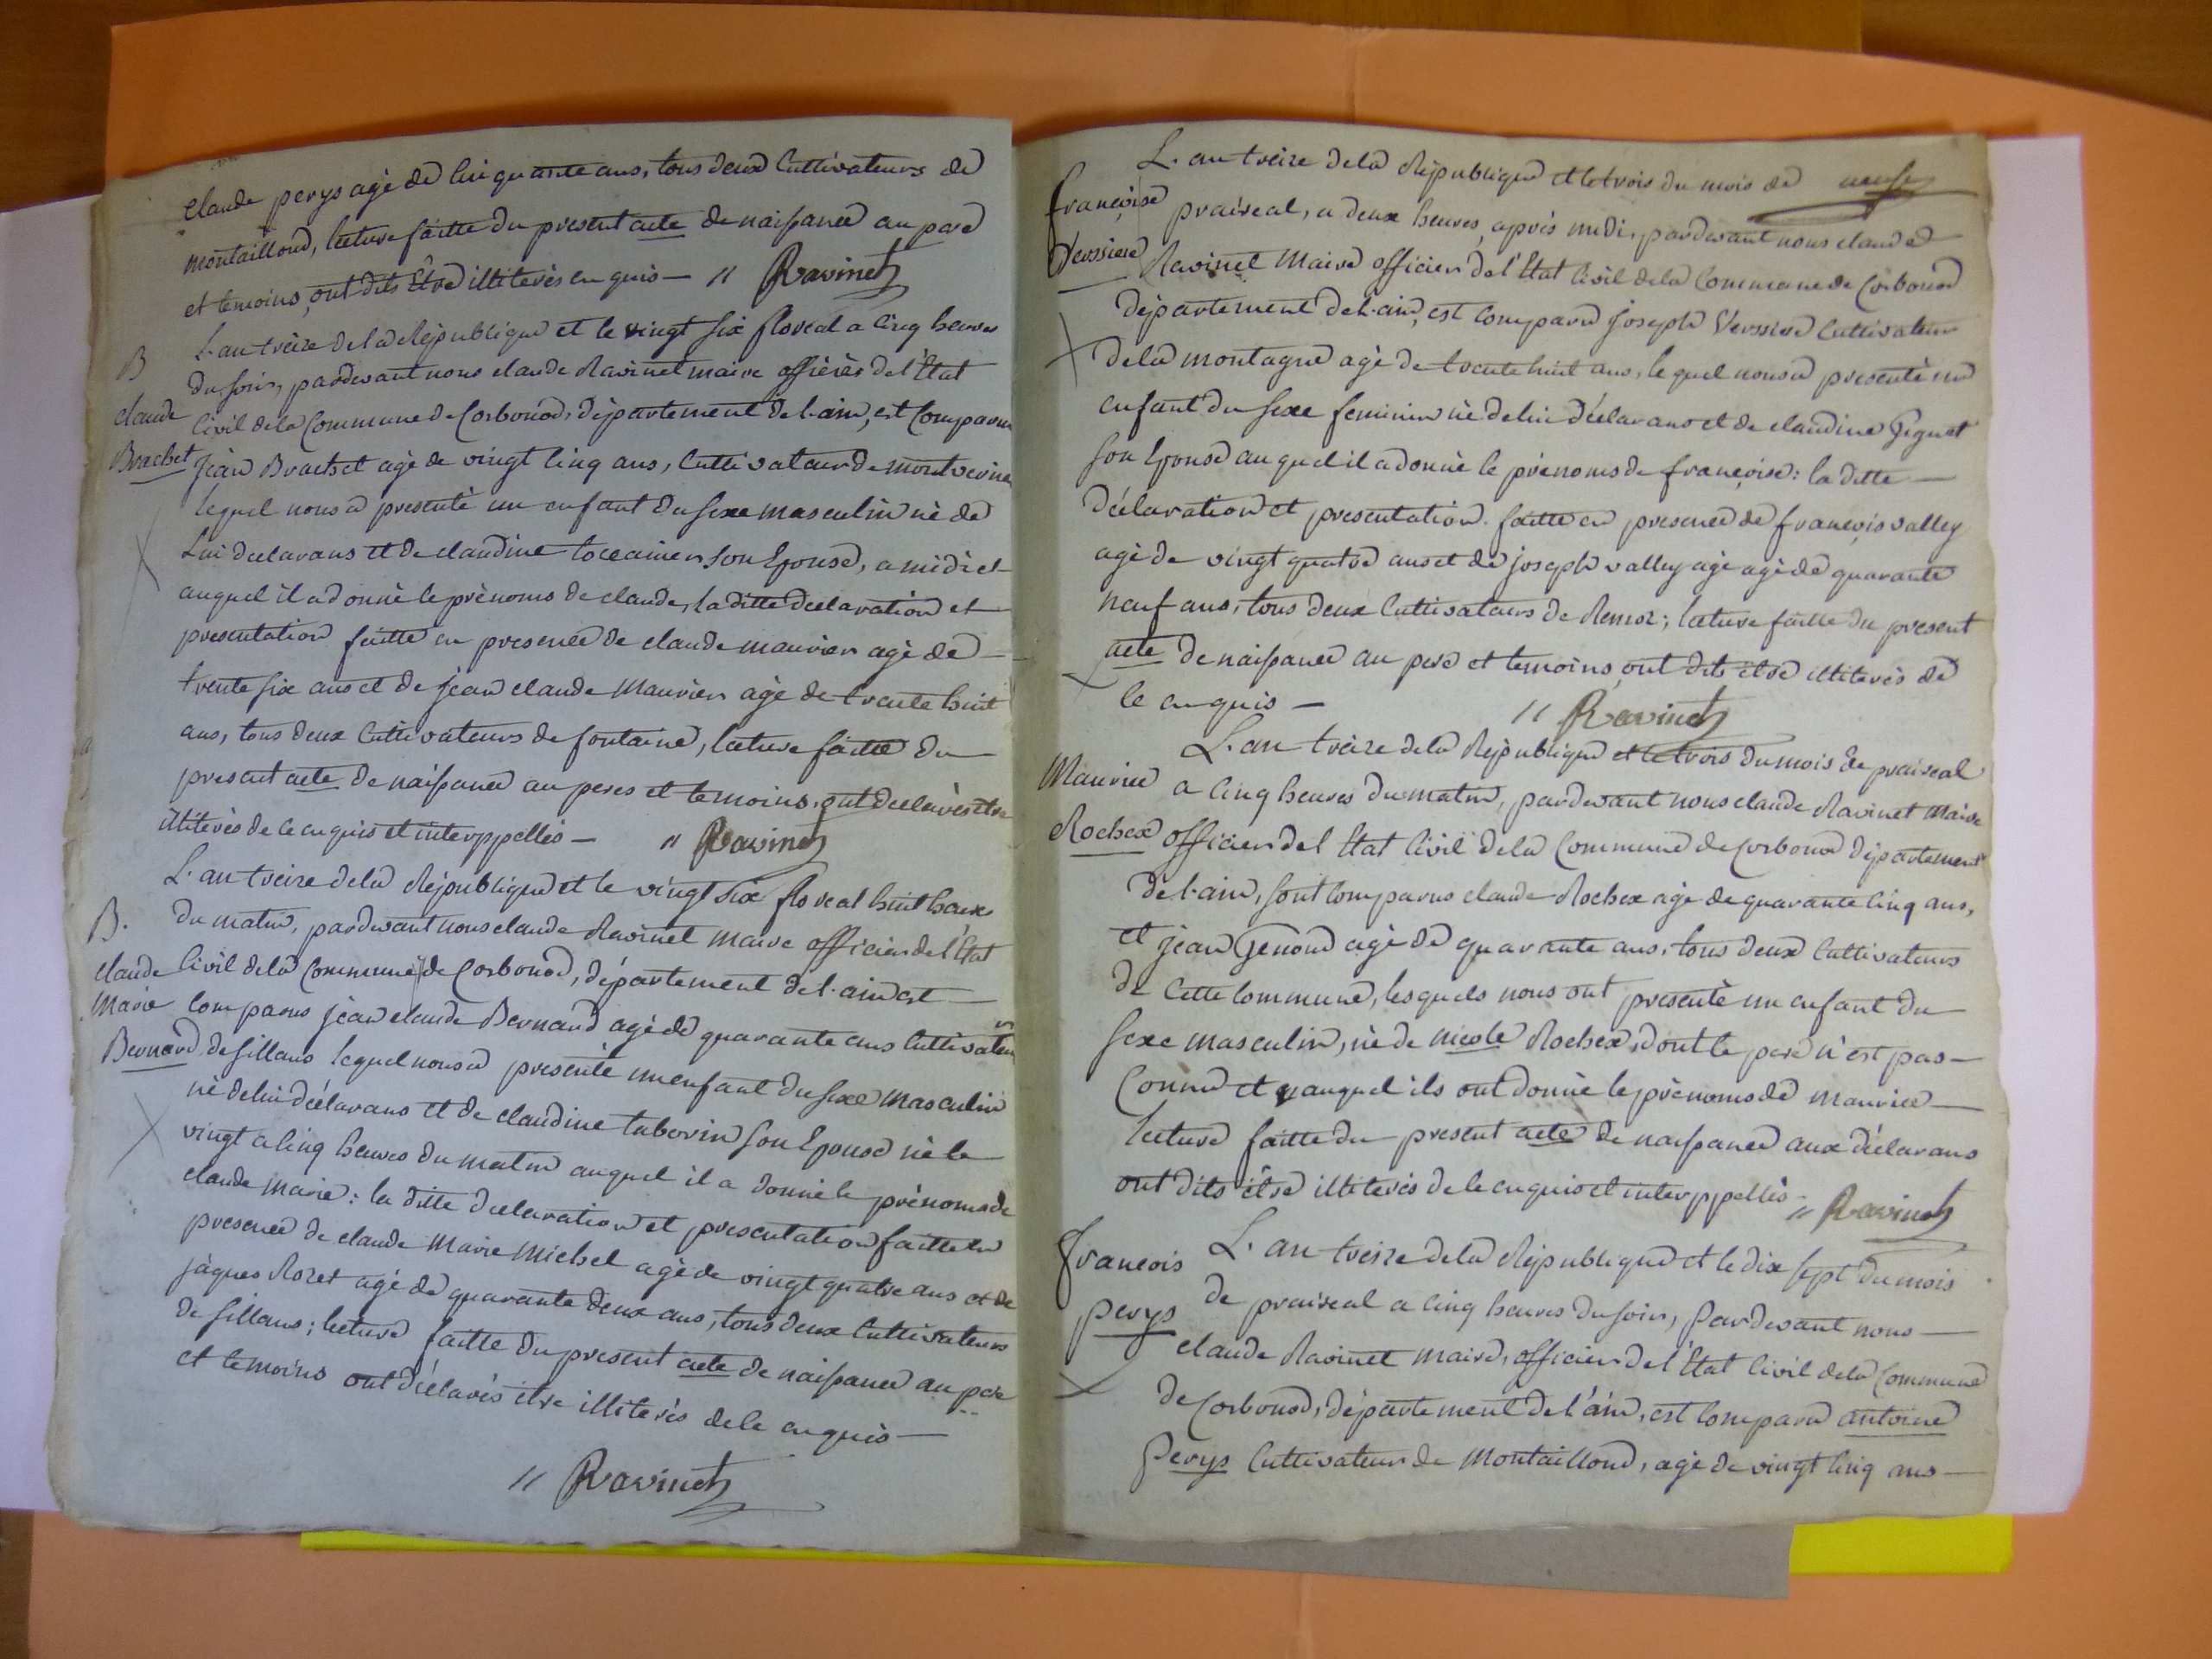 claude perys agè de cinquante ans, tous deux Cultivateurs de
montailloud, lecture faitte du present acte de naissance au pere
et temoins, ont dits être illiterès enquis — " Ravinet
L'an treize de la Rèpublique et le vingt six floreal a cinq heures
B
du soir, pardevant nous claude Ravinet maire officièr de l'Etat
claude
Civil de la Commune de Corbonod, dèpartement de l'ain, est Comparu
Brachet
jèan Brachet agè de vingt cinq ans, Cultivateur de
lequel nous a presentè un enfant du sexe masculin nè de
Lui declarans et de claudine son Epouse, a midi et
auquel il a donnè le prènoms de claude, la ditte declaration et
presentation faitte en presence de claude maurier agè de —
trente six ans et de jean claude Maurier agè de trente huit
ans, tous deux Cultivateurs de fontaine, lecture faitte du
present acte de naissance au peres et temoins, ont declarès etre
illiterès de ce enquis et interppellès — " Ravinet
L'an treize de la Rèpublique et le vingt six floreal huit heures
B.
du matin, pardevant nous claude Ravinet maire officier de l'Etat
claude
Civil de la Commune de Corbonod, dèpartement de l'ain est —
Marie
Comparus jèan claude Bernard agè de quarante ans Cultivateur
Bernard
de sillans lequel nous a presentè un enfant du sexe masculin
nè de lui dèclarans et de claudine taborin son Epouse nè le
vingt a cinq heures du matin auquel il a donnè le prènoms de
claude marie : la ditte declaration et presentation faitte en
presence de claude Marie Michel agè de vingt quatre ans et de
jàques Rozet agè de quarante deux ans, tous deux Cultivateurs
de sillans ; lecture faitte du present acte de naissance au pere
et temoins ont dèclarès etre illiterès de ce enquis —
" Ravinet
L'an treize de la Rèpublique et le trois du mois de
françoise
praireal, a deux heures, après midi, pardevant nous claude
Verssiere
Ravinet Maire officier de l'Etat Civil de la Commune de Corbonod
dèpartement de l'ain, est Comparu joseph Verssiere Cultivateur
de la montagne agè de trente huit ans, lequel nous a presentè un
enfant du sexe feminin nè de lui dèclarans et de claudine Gignet
son Epouse auquel il a donnè le prènoms de françoise : la ditte —
dèclaration et presentation faitte en presence de françois valley
agè de vingt quatre ans et de joseph valley agè agè de quarante
neuf ans, tous deux Cultivateurs de Remoz ; lecture faitte du present
acte de naissance au pere et temoins ont dits être illiterès de
ce enquis — " Ravinet
L'an treize de la Rèpublique et le trois du mois de praireal
Maurice
a cinq heures du matin, pardevant nous claude Ravinet Maire
Rochex
officier de l'Etat Civil de la Commune de Corbonod dèpartement
de l'ain, sont Comparus claude Rochex agè de quarante cinq ans,
et jèan Genoud agè de quarante ans, tous deux Cultivateurs
de Cette Commune, lesquels nous ont presentè un enfant du
sexe masculin, nè de nicole Rochex, dont le pere n'est pas —
Connu et auquel ils ont donnè le prènoms de maurice —
lecture faitte du present acte de naissance aux dèclarans
ont dits être illiterès de ce enquis et interppellès — " Ravinet
francois
L'an treize de la Rèpublique et le dix sept du mois
perys
de praireal a cinq heures du soir, Pardevant nous —
claude Ravinet maire, officier de l'Etat Civil de la Commune
de Corbonod, dèpartement de l'ain, est Comparu antoine
Perys Cultivateur de Montailloud, agè de vingt cinq ans —